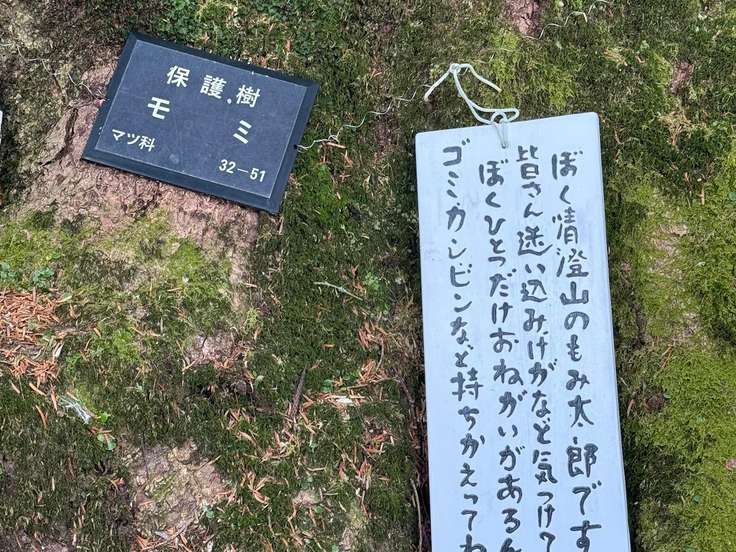 保護樹
モミ
マツ科
32-51
ぼく清澄山のもみ太郎です
皆さん迷い込みけがなど気つけて
ぼくひとつだけおねがいがあるん
ゴミカンビンなど持ちかえってね